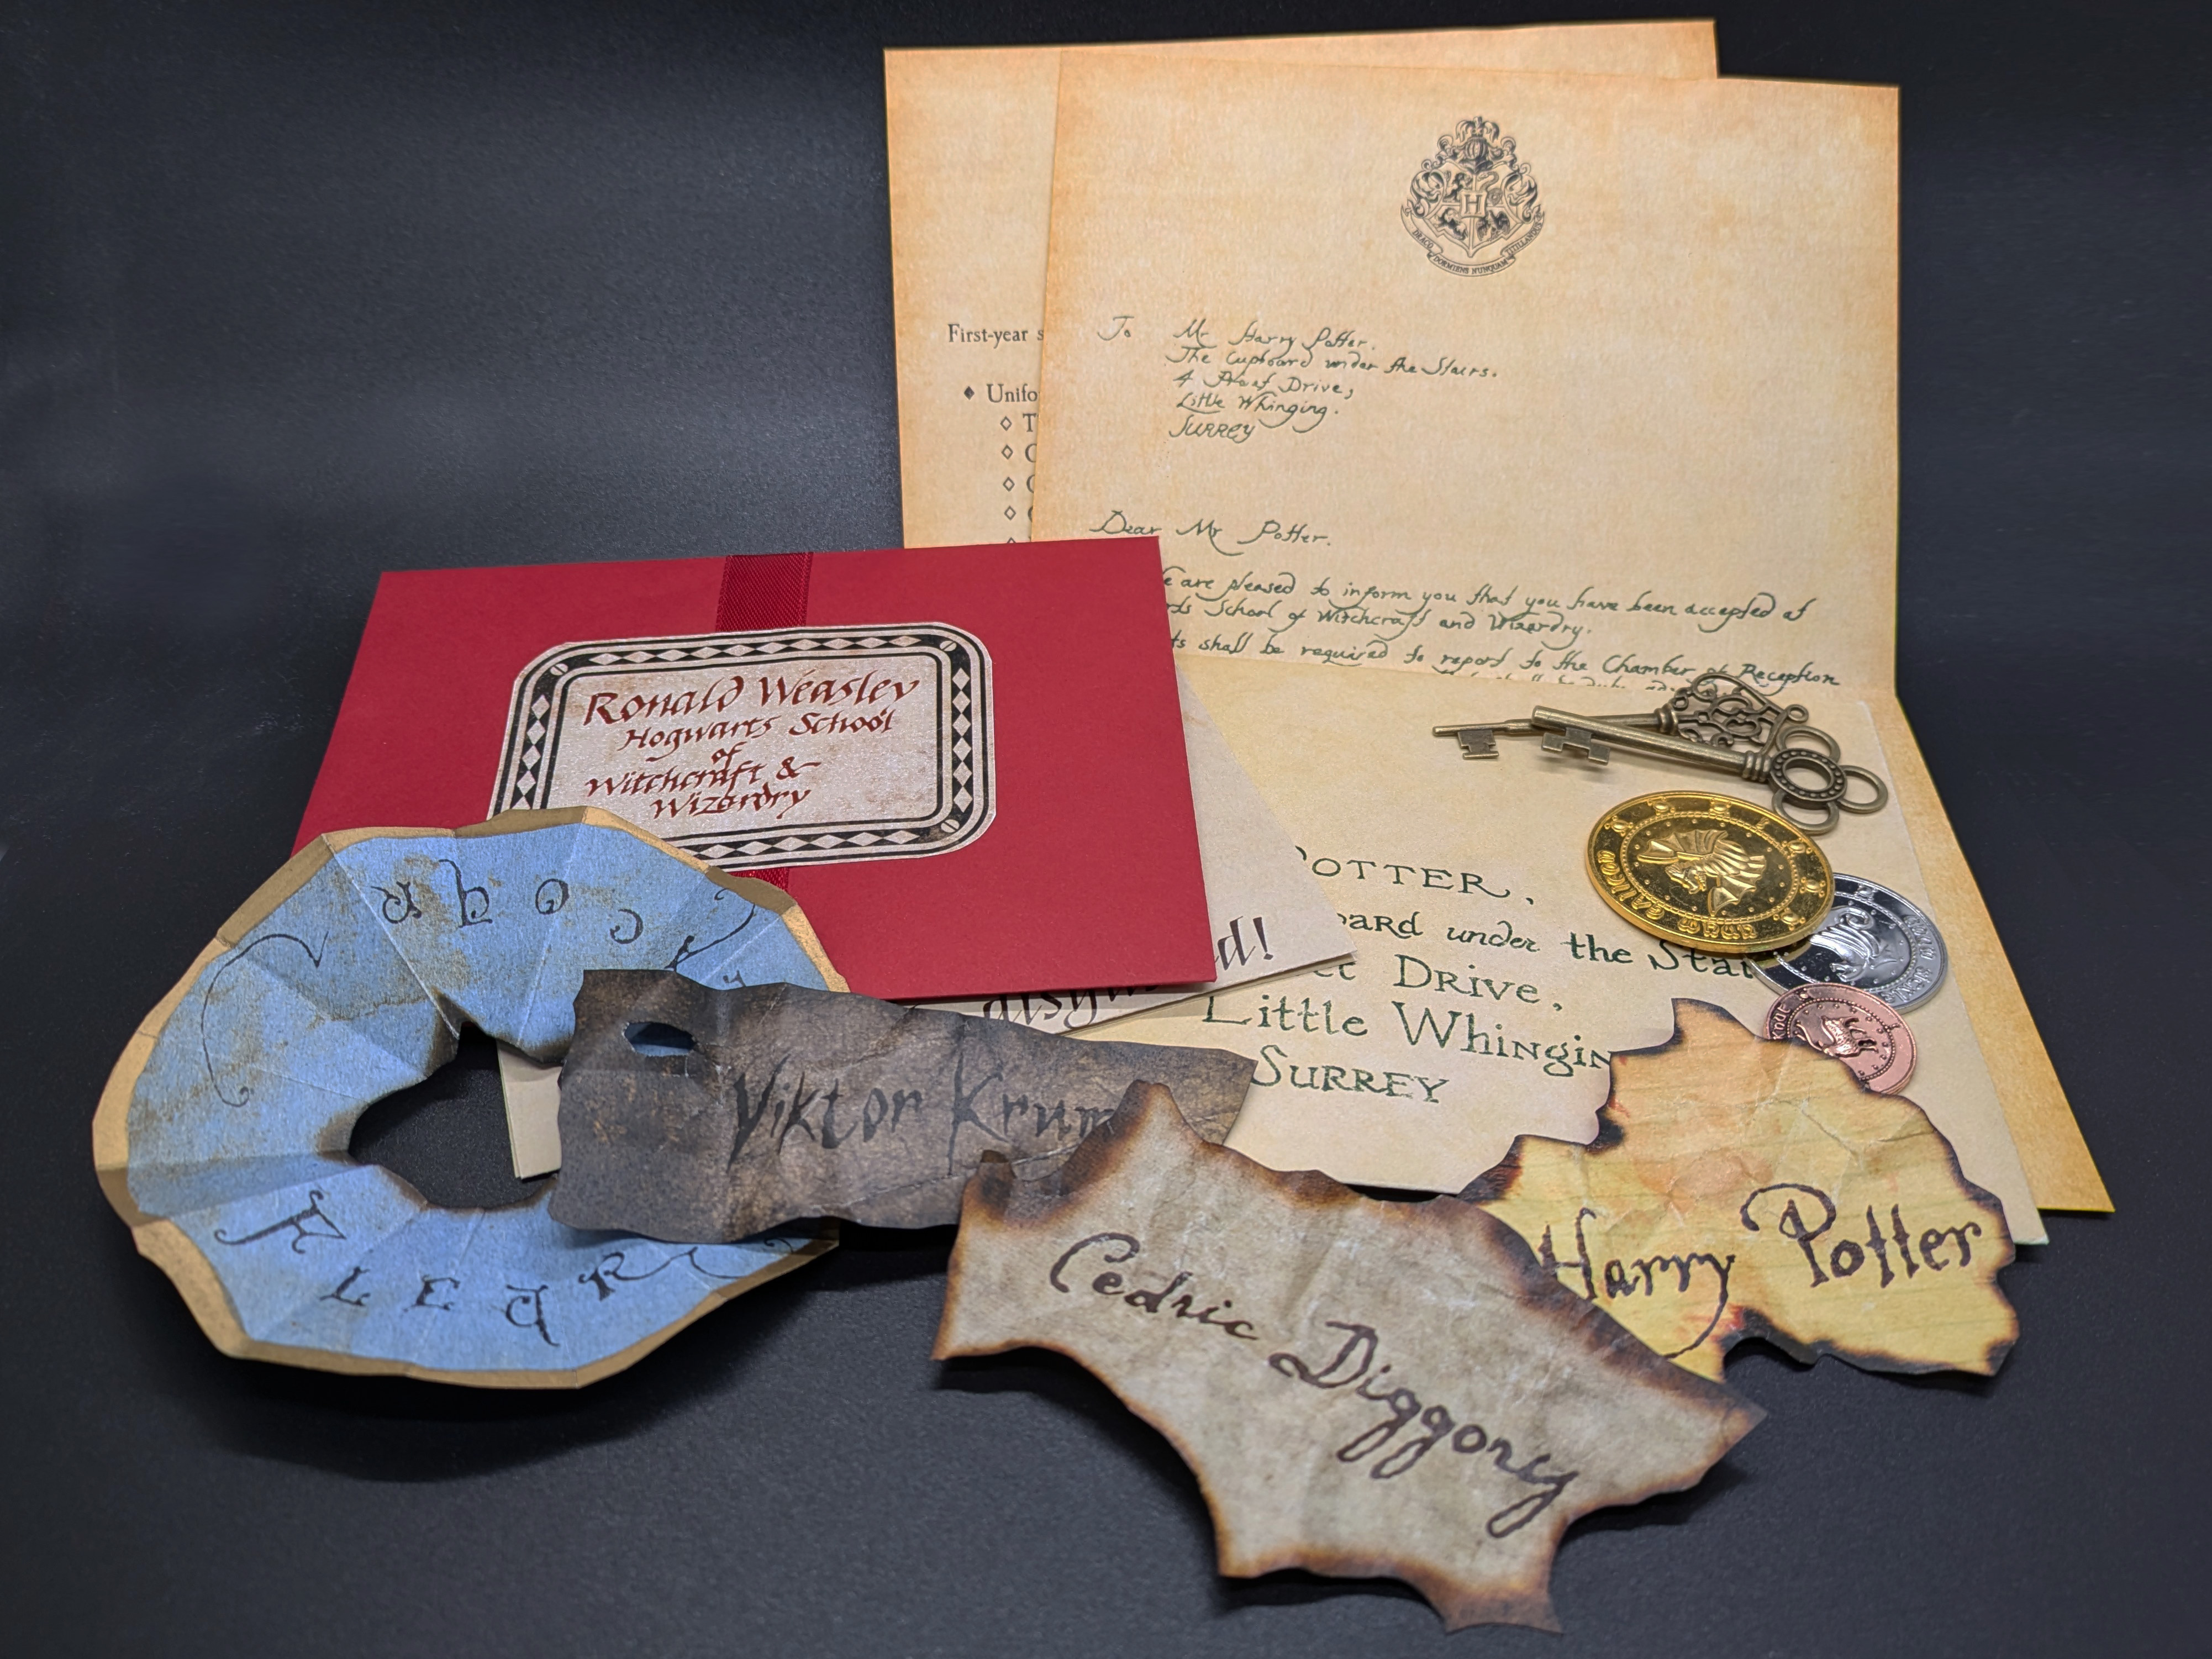 DRACO DORMIENS NUNQUAM TITILLANDUS
H
First-year
To Mr Harry Potter.
The Cupboard under the Stairs.
4 Privet Drive,
Little Whinging.
SURREY
Dear Mr Potter.
are pleased to inform you that you have been accepted at
School of Witchcraft and Wizardry.
shall be required to report to the Chamber of Reception
Ronald Weasley
Hogwarts School
of
Witchcraft &
Wizardry
POTTER,
under the
DRIVE,
Little
SURREY
GALLEON
FLEUR
Viktor Krum
Cedric Diggory
Harry Potter